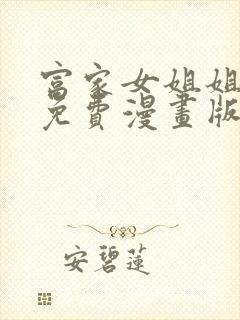 富家女姐姐
免費漫畫版
安碧蓮